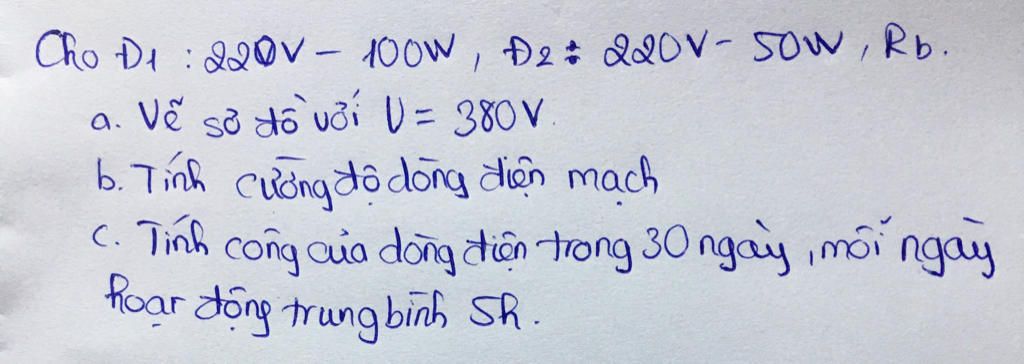 Cho Đ1 : 220V - 100W, Đ2 : 220V - 50W, Rb.
a. Vẽ sơ đồ với U = 380V.
b. Tính cường độ dòng điện mạch
c. Tính công của dòng điện trong 30 ngày, mỗi ngày
hoạt động trung bình 5h.